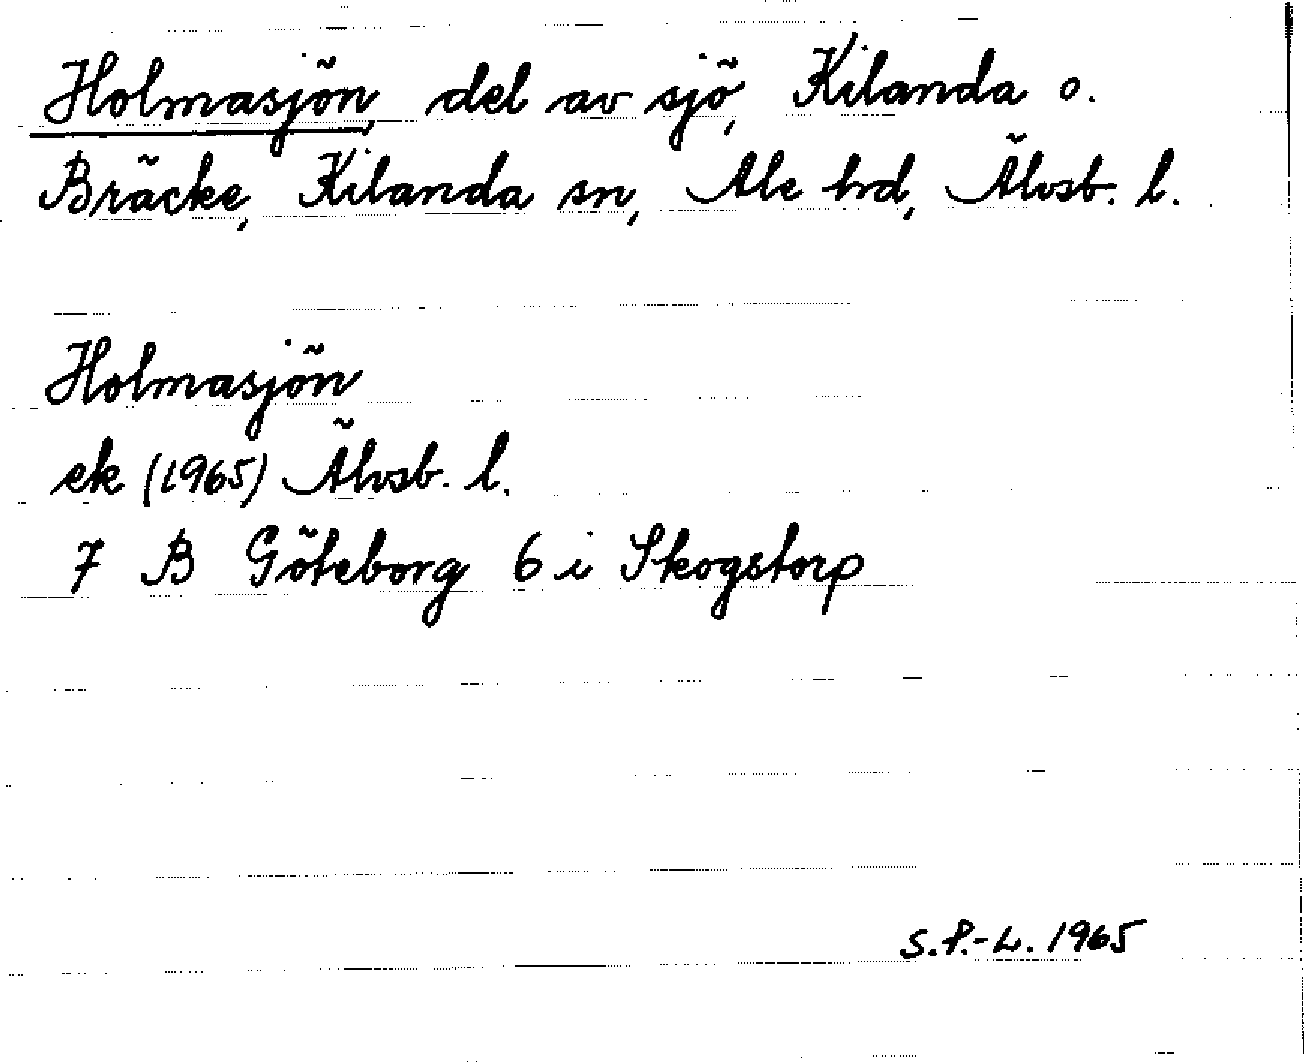 Holmasjön, del av sjö, Kilanda o.
Bräcke, Kilanda sn, Ale hd, Älvsb. l.
Holmasjön
ek (1965) Älvsb. l.
7 B Göteborg 6 i Skogstorp
S.P.-L. 1965